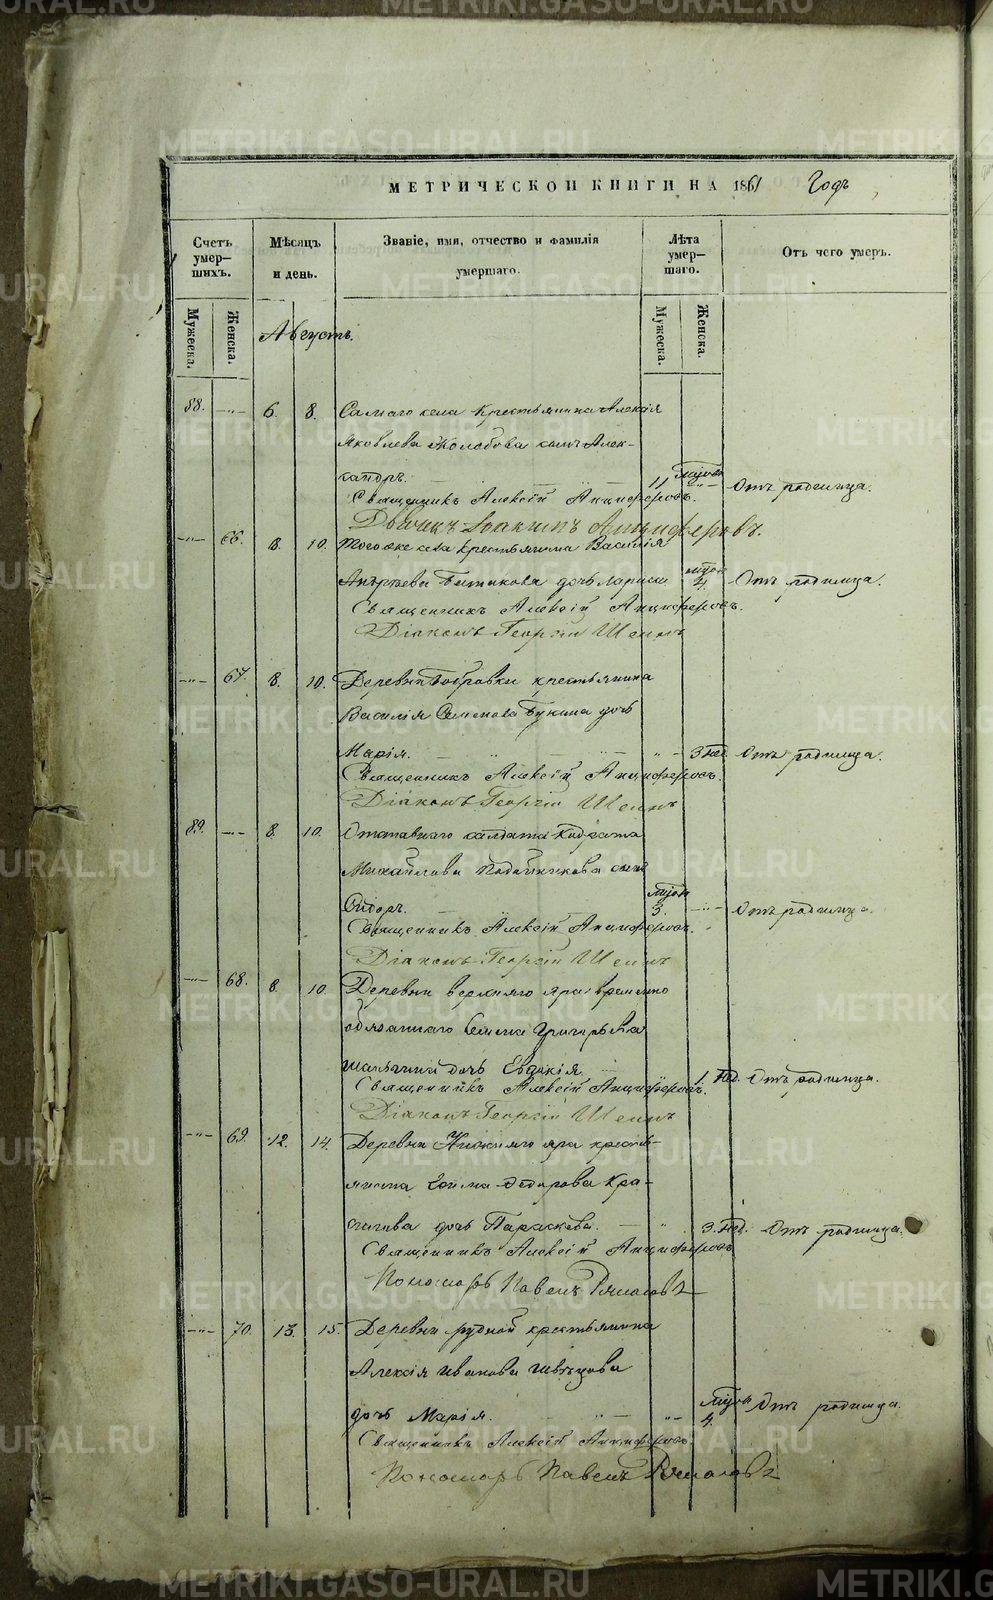 МЕТРИЧЕСКОЙ КНИГИ НА 1861 Годъ
Счетъ умер-шихъ.
Мѣсяцъ и день.
Званіе, имя, отчество и фамилія умершаго.
Лѣта умер-шаго.
Отъ чего умеръ.
Мужеска.
Женска.
Августъ.
Мужеска.
Женска.
88. -"- 6. 8. Самаго села Крестьянина Алексія
Яковлева Колобова сынъ Алек-
сандръ. 11 -"- Отъ родимца.
Священникъ Алексій Анциферовъ.
Дьячекъ Іоакимъ Анциферовъ.
-"- 66. 8. 10. Тогоже села Крестьянина Василія
Андреева дочь 4. Отъ родимца.
Священникъ Алексій Анциферовъ.
Діаконъ Георгій Шеинъ
-"- 67. 8. 10. Деревни Бобровки крестьянина
Василія Семенова Букина дочь
Марія. 3 Отъ родимца.
Священникъ Алексій Анциферовъ.
Діаконъ Георгій Шеинъ
89. -"- 8. 10. Отставнаго солдата
Михайлова сынъ
3. -"- Отъ родимца.
Священникъ Алексій Анциферовъ.
Діаконъ Георгій Шеинъ
-"- 68. 8. 10. Деревни верхняго яра временно
обязаннаго Григорьева
дочь Евдокія. 1. Отъ родимца.
Священникъ Алексій Анциферовъ.
Діаконъ Георгій Шеинъ
-"- 69. 12. 14. Деревни Нижняго яра кресть-
янина Федорова
дочь Параскева. 3. Отъ родимца.
Священникъ Алексій Анциферовъ
Пономарь Павелъ
-"- 70. 13. 15. Деревни рудной крестьянина
Алексія Иванова Швецова
дочь Марія. 4. Отъ родимца.
Священникъ Алексій Анциферовъ.
Пономарь Павелъ
METRIKI.GASO-URAL.RU